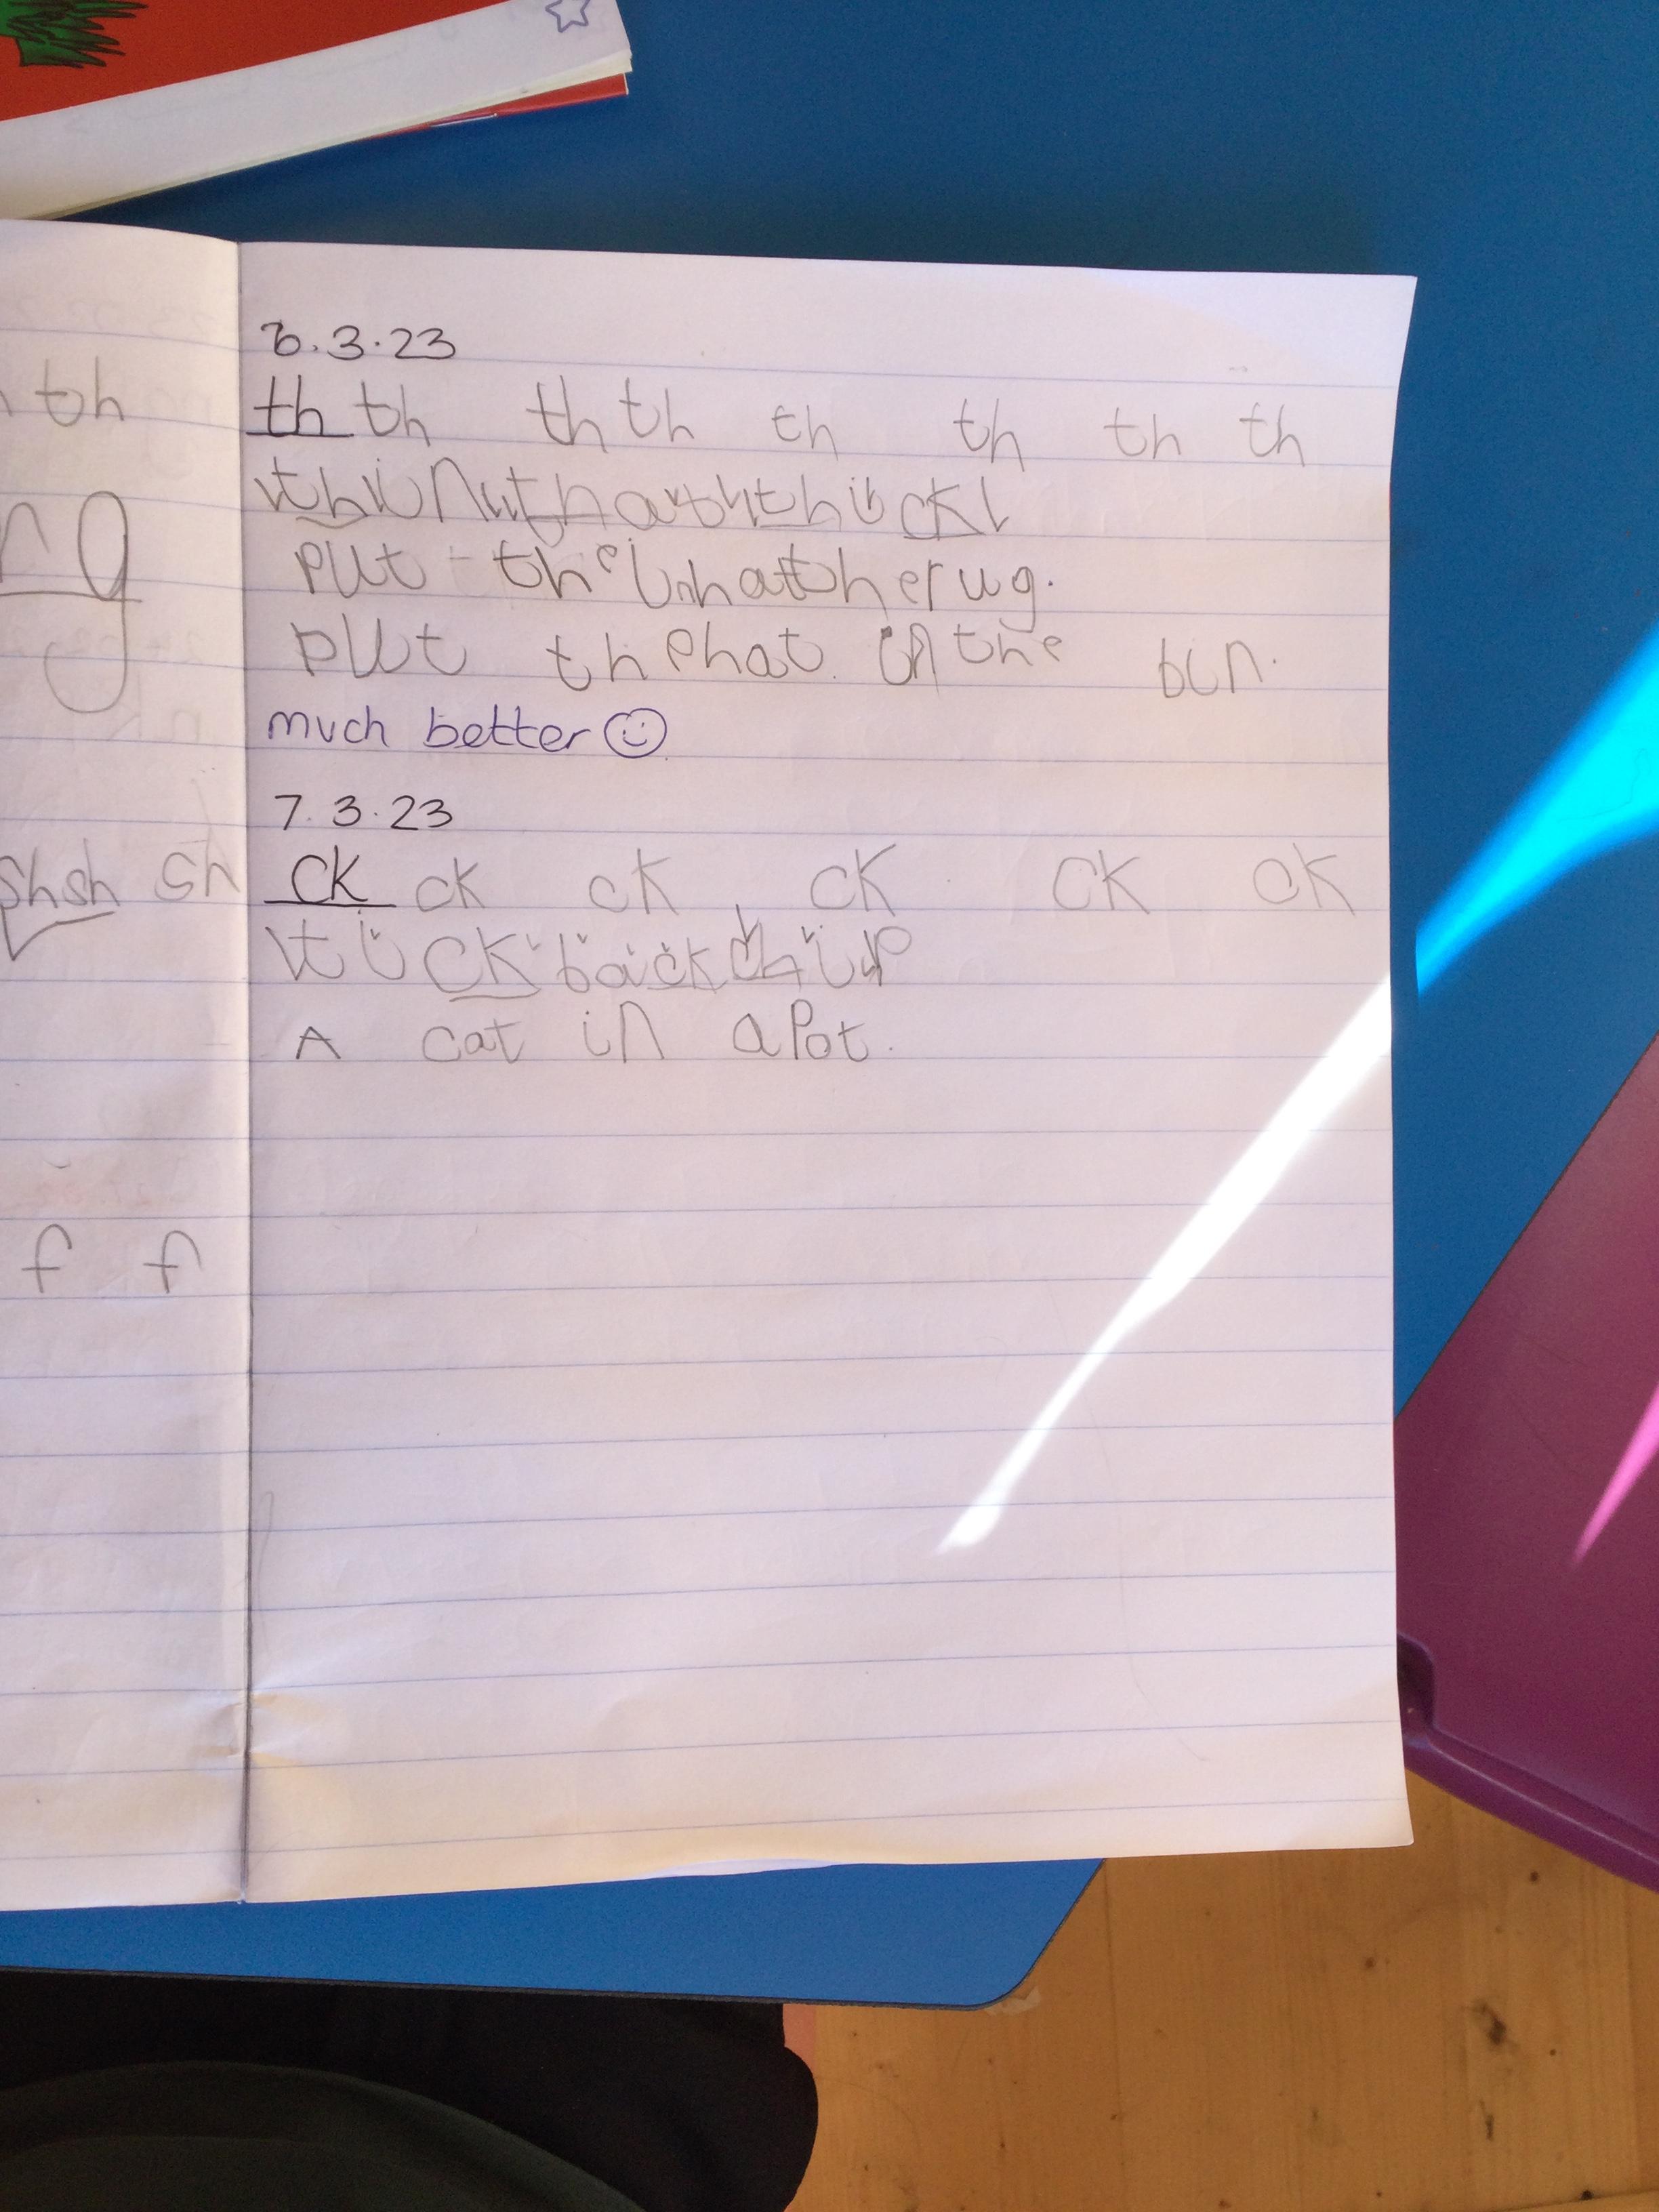 th
ng
shsh sh
f f
6.3.23
th th th th th th th th
thin that thick
put the in hat the rug.
put the hat in the bin.
much better
7.3.23
ck ck ck ck ck ck
tick back chip
A cat in a Pot.